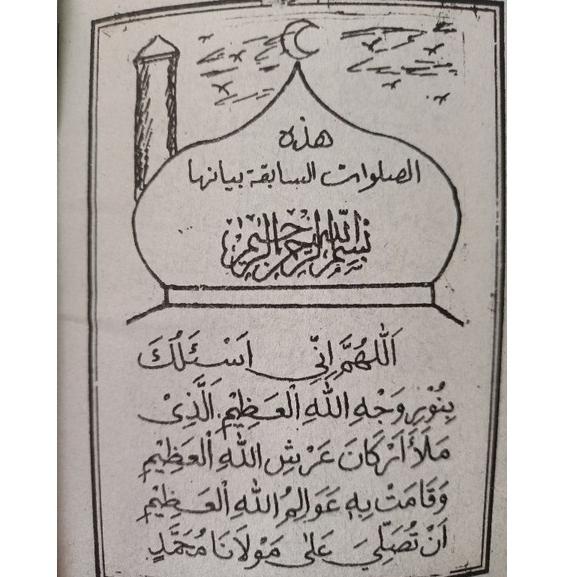 هذه
الصلوات السابقة بيانها
بسم الله الرحمن الرحيم
اَللّٰهُمَّ اِنِّي اَسْئَلُكَ
بِنُوْرِ وَجْهِ اللهِ الْعَظِيْمِ. اَلَّذِىْ
مَلَأَ اَرْكَانَ عَرْشِ اللهِ الْعَظِيْمِ
وَقَامَتْ بِهِ عَوَالِمُ اللهِ الْعَظِيْمِ
اَنْ تُصَلِّيَ عَلٰى مَوْلَانَا مُحَمَّدٍ